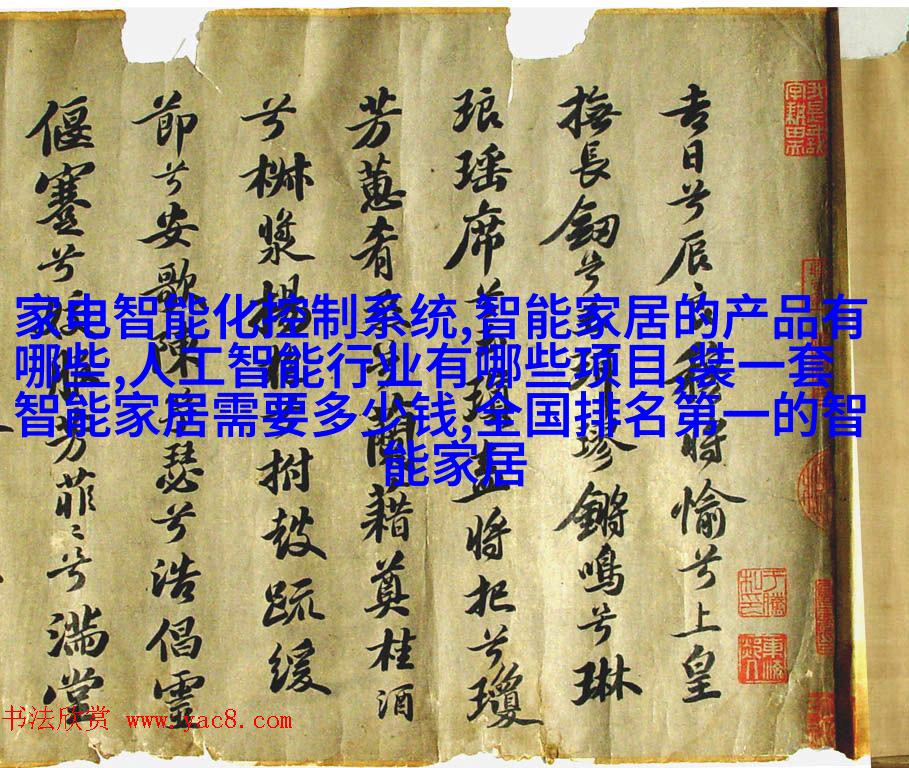 吉日兮辰良穆將愉兮上皇
撫長劒兮玉珥璆鏘鳴兮琳
琅瑶席兮玉瑱盍將把兮瓊
芳蕙肴蒸兮蘭藉奠桂酒
兮椒漿揚枹兮拊鼓疏緩
節兮安歌陳竽瑟兮浩倡靈
偃蹇兮姣服芳菲〻兮滿堂
家电智能化控制系统,智能家居的产品有
哪些,人工智能行业有哪些项目,装一套
智能家居需要多少钱,全国排名第一的智
能家居
书法欣赏 www.yac8.com